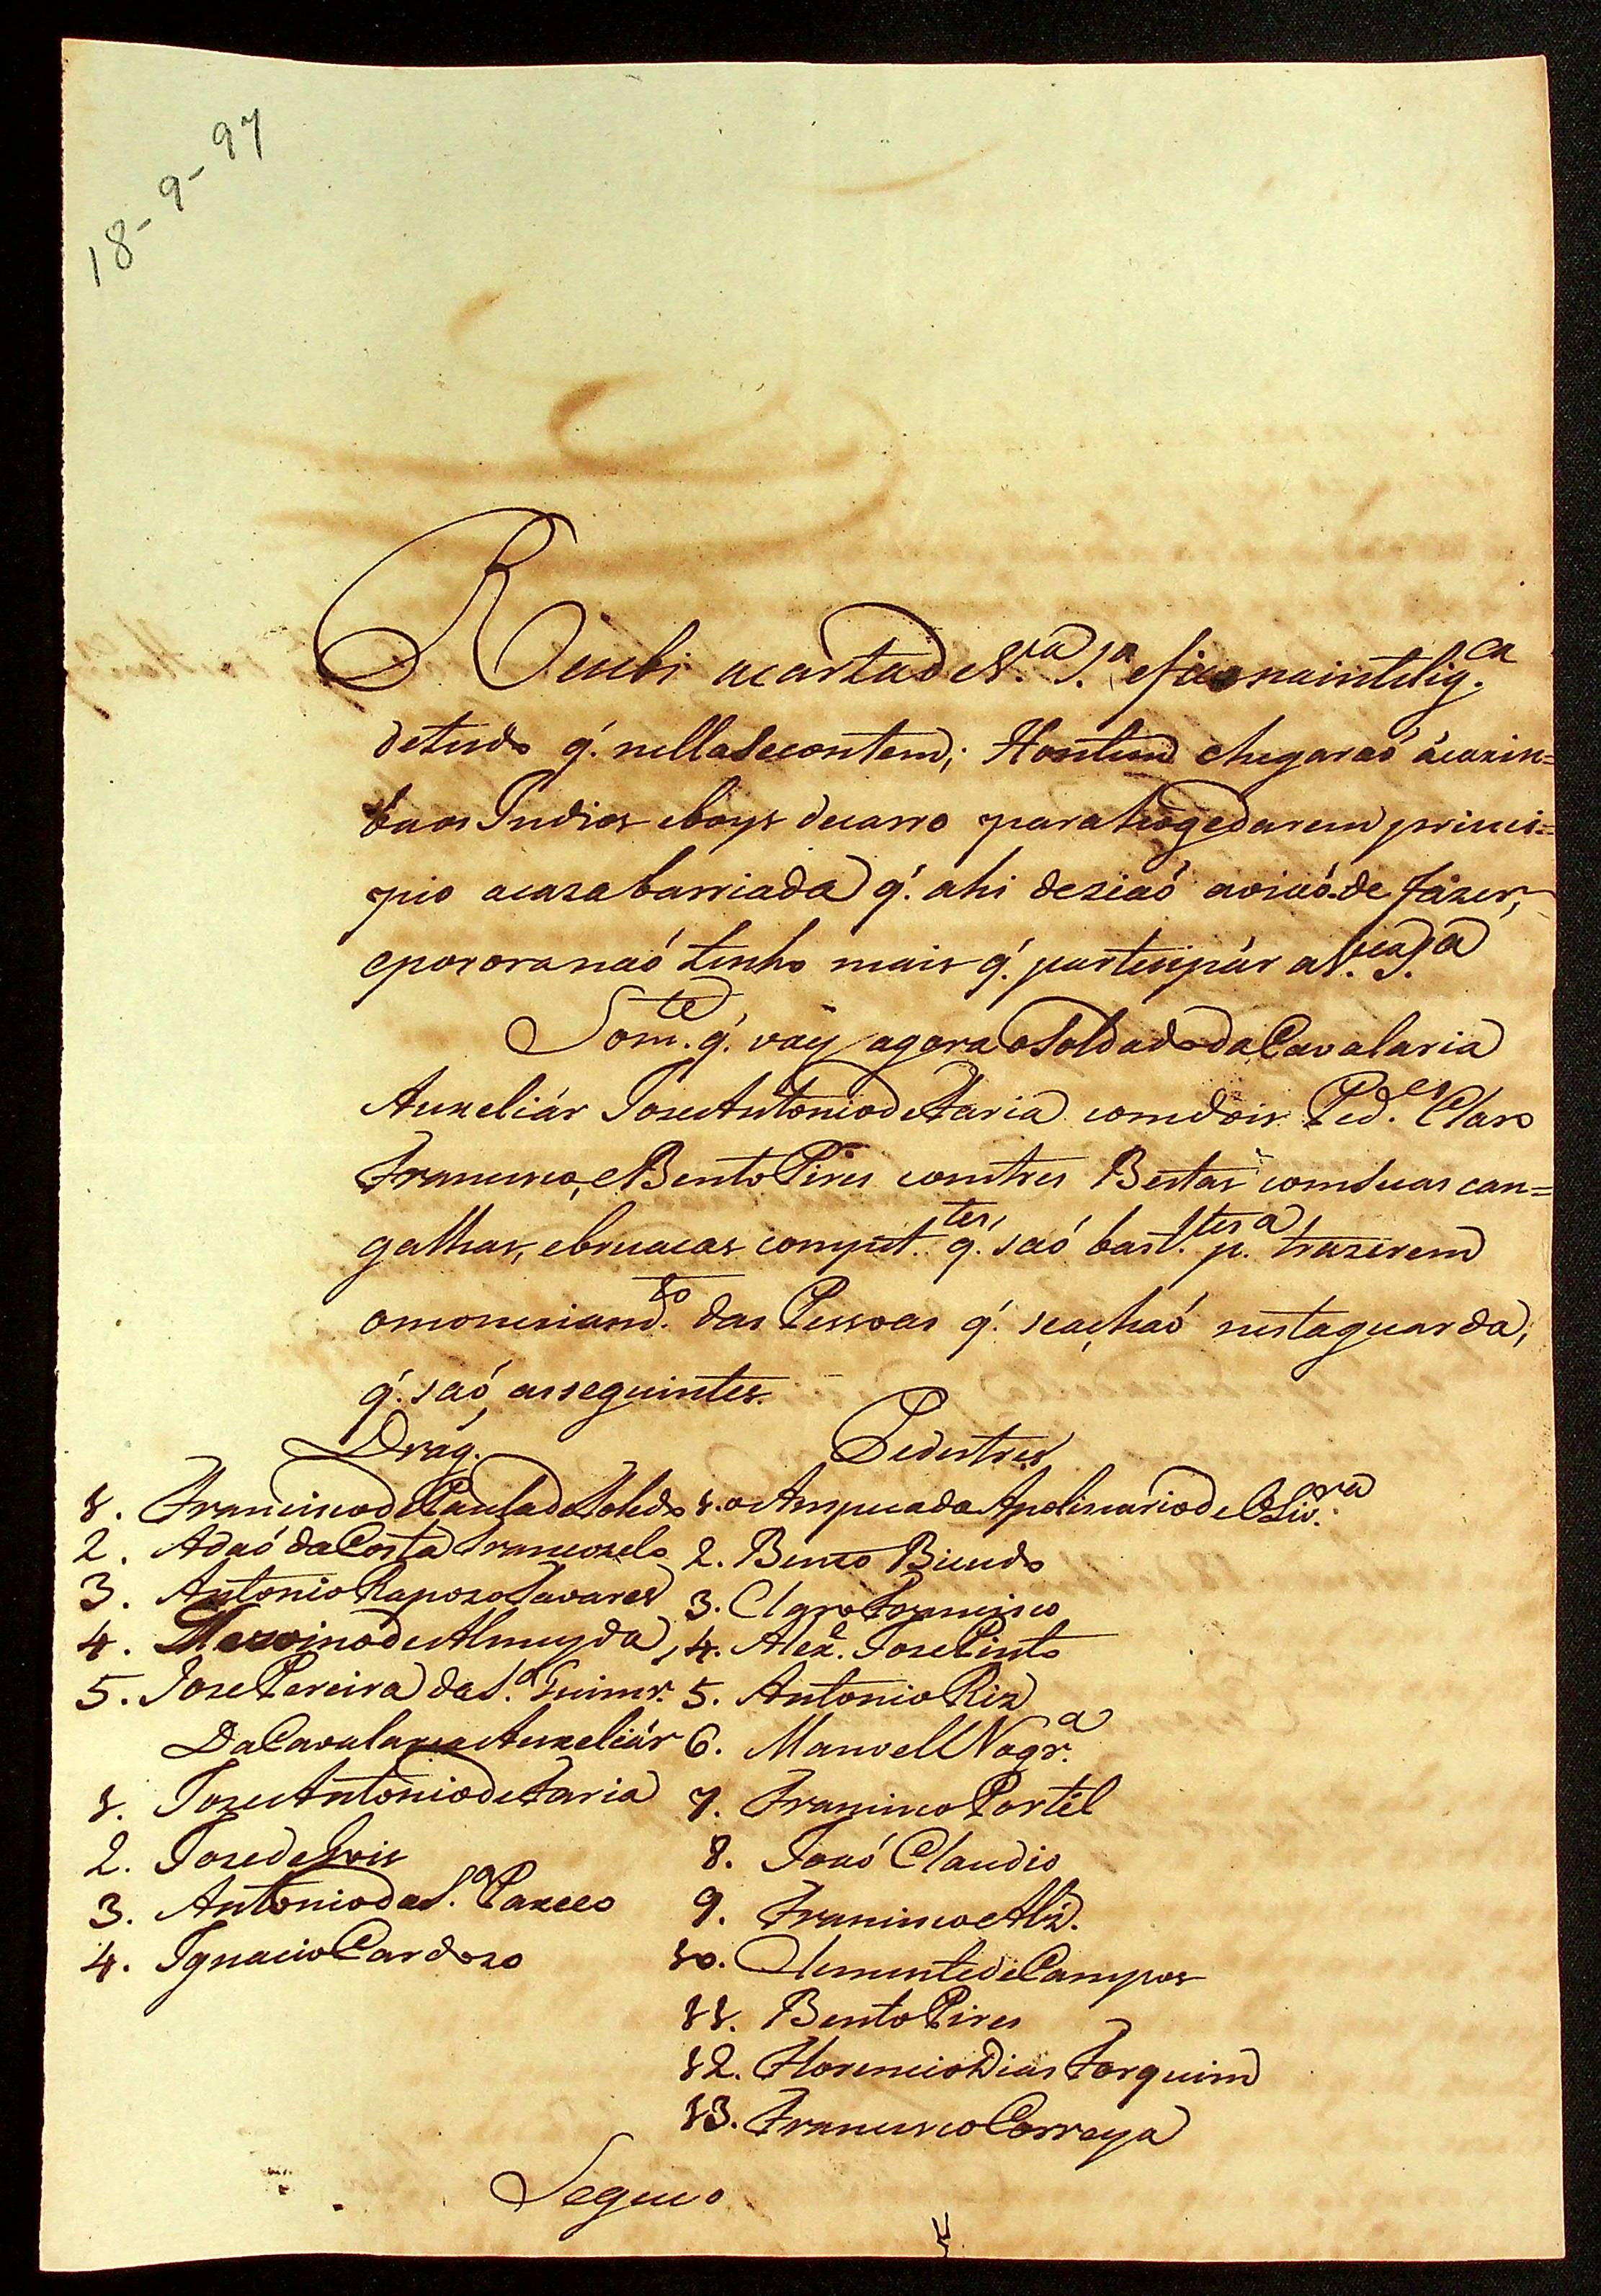 18-9-97
Recebi acartade V.ra S.a efico naintelig.ca
detudo q'. nellaSecontem; Hontem chegaraó ácazin=
os Indios eboys decarro para hógedarem princi=
pio acaza barriada q'. ahi deziaó aviaó de fázer,
eporora naó tenho mais q'. partecipár aV.ca S.a
Som.te q'. vay agora oSoldado daCavalaria
Auxeliár Joze Antonio de Faria comdois Ped.es Claro
Francisco, eBento Pires comtres Bestas comSuas can=
galhas, ebruacas compet.tes q'. saó bast.tes p.a trazerem
omoniciam.to das Pessoas q'. seachaó nestaguarda,
q'. saó, asseguintes.
Drag.
1. Francisco dePaula deToledo
2. Adaó daCosta Francozelo
3. Antonio Rapozo Tavares
4. de Almeyda
5. Joze Pereira da S.a Guimr.
DaCavalaria Auxeliár
1. Joze Antonio de Faria
2. Joze deGois
3. Antonio da S.a Paxeco
4. Ignacio Cardozo
Pedestres
1. o Anspeçada Apolinario de Oliv.ra
2. Bento Bicudo
3. Claro Francisco
4. Alex.e Joze Pinto
5. Antonio Riz
6. Manoel Nogr.a
7. Francisco Portél
8. Joaó Claudio
9. Francisco Alz.
10. Clemente de Campos
11. Bento Pires
12. Florencio Dias Torquim
13. Francisco Correya
Segueo